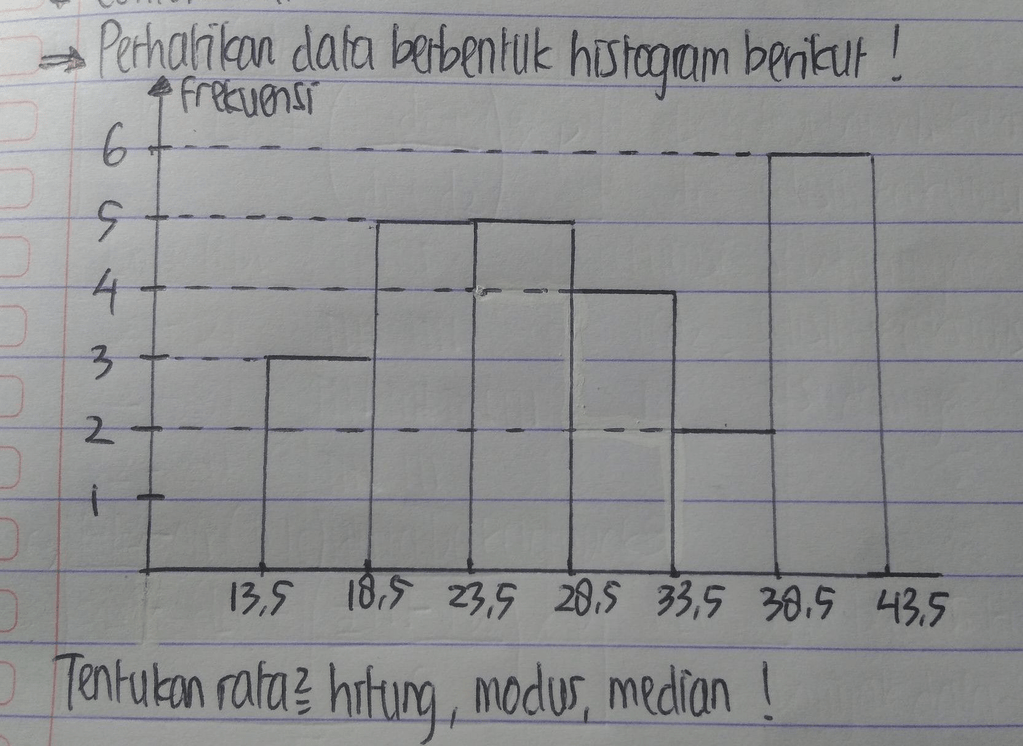 ⇒ Perhatikan data berbentuk histogram berikut !
Frekuensi
6
5
4
3
2
1
13,5 18,5 23,5 28,5 33,5 38,5 43,5
Tentukan rata² hitung, modus, median !